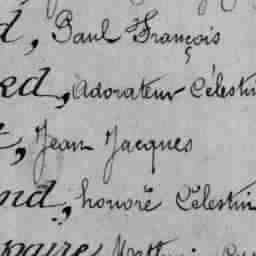 d, Paul François
ed, Adorateur Célestin
t, Jean Jacques
nd, honoré Célestin
paire